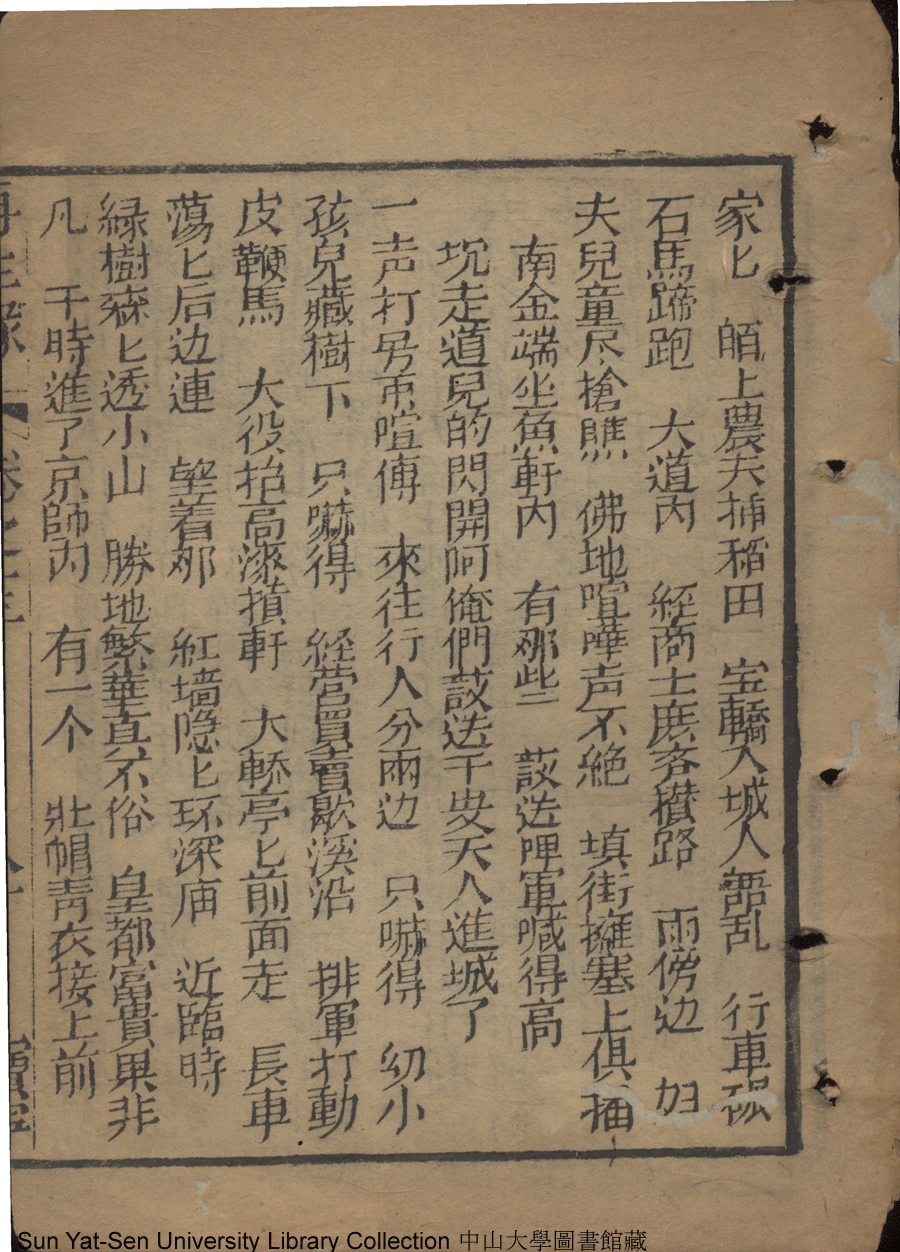 家匕 陌上農夫挿稻田 宝轎入城人語乱 行車
石馬蹄跑 大道内 経商士庶客攅路 雨傍边
夫兒童尽槍瞧 佛地喧嘩声不絶 填街擁塞上俱
南金端坐魚軒内 有那些 蔎法呷軍喊得高
坃走道兒的閃開阿俺們蔎法千歲夫人進城了
一声打另束喧傳 來往行人分兩边 只嚇得 幼小
孩兒藏樹下 只嚇得 経营買賣歇溪沿 排軍打動
皮鞭馬 大役抬高漆揁軒 大轎亭匕前面走 長車
蕩匕后边連 望着那 紅墙隐匕环深庙 近臨時
緑樹森匕透小山 勝地繁華真不俗 皇都富貴果非
凡 千時進了京師内 有一个 壯帽青衣接上前
Sun Yat-Sen University Library Collection 中山大學圖書館藏